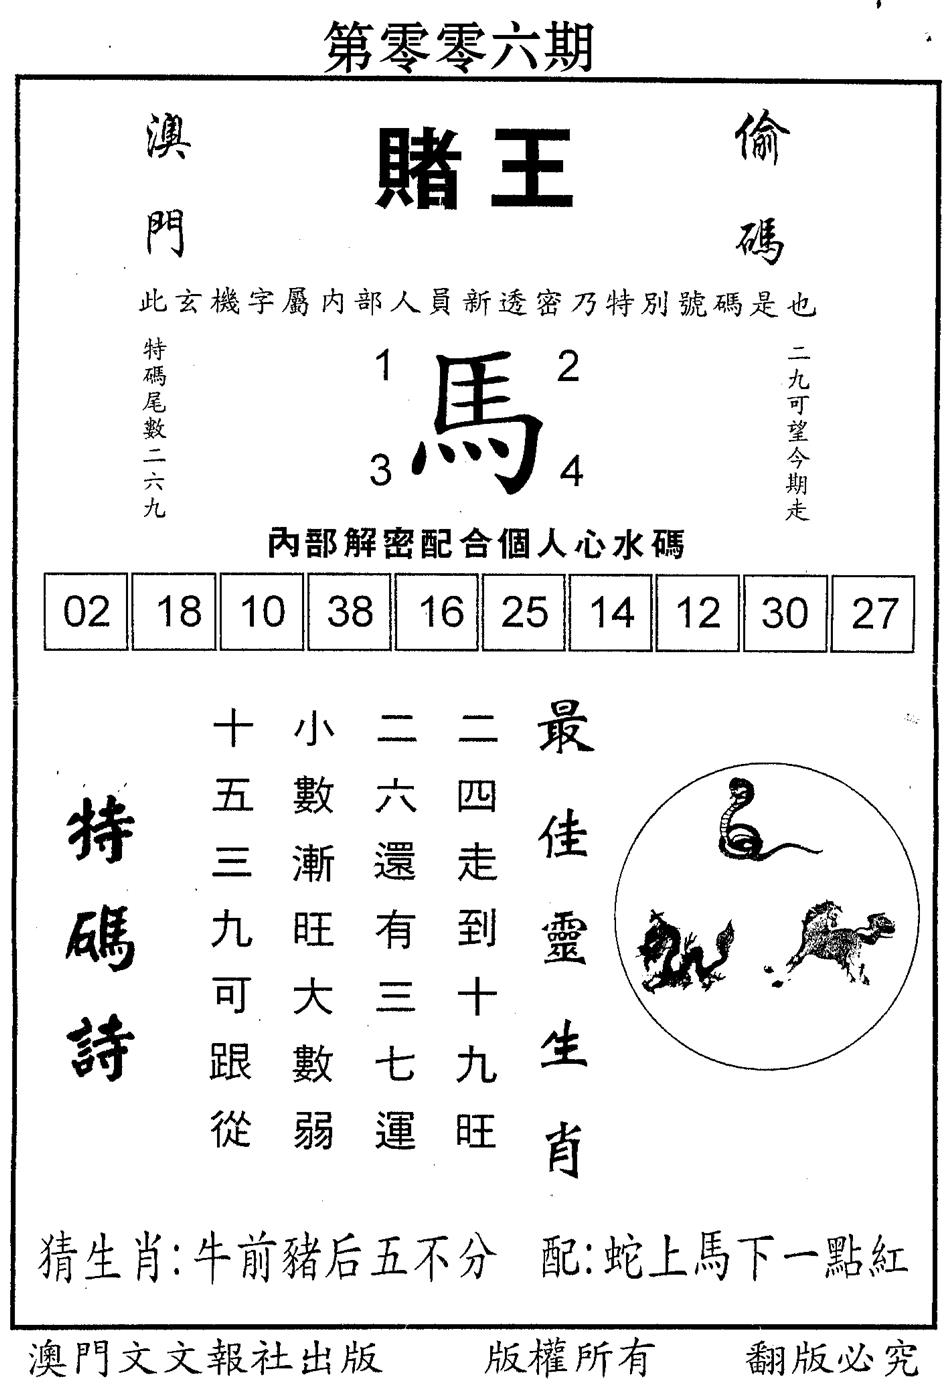 第零零六期
澳門
賭王
偷碼
此玄機字屬内部人員新透密乃特別號碼是也
特碼尾數二六九
1
2
馬
3
4
二九可望今期走
內部解密配合個人心水碼
02 18 10 38 16 25 14 12 30 27
最佳靈生肖
二四走到十九旺
二六還有三七運
小數漸旺大數弱
十五三九可跟從
特碼詩
猜生肖:牛前豬后五不分 配:蛇上馬下一點紅
澳門文文報社出版 版權所有 翻版必究